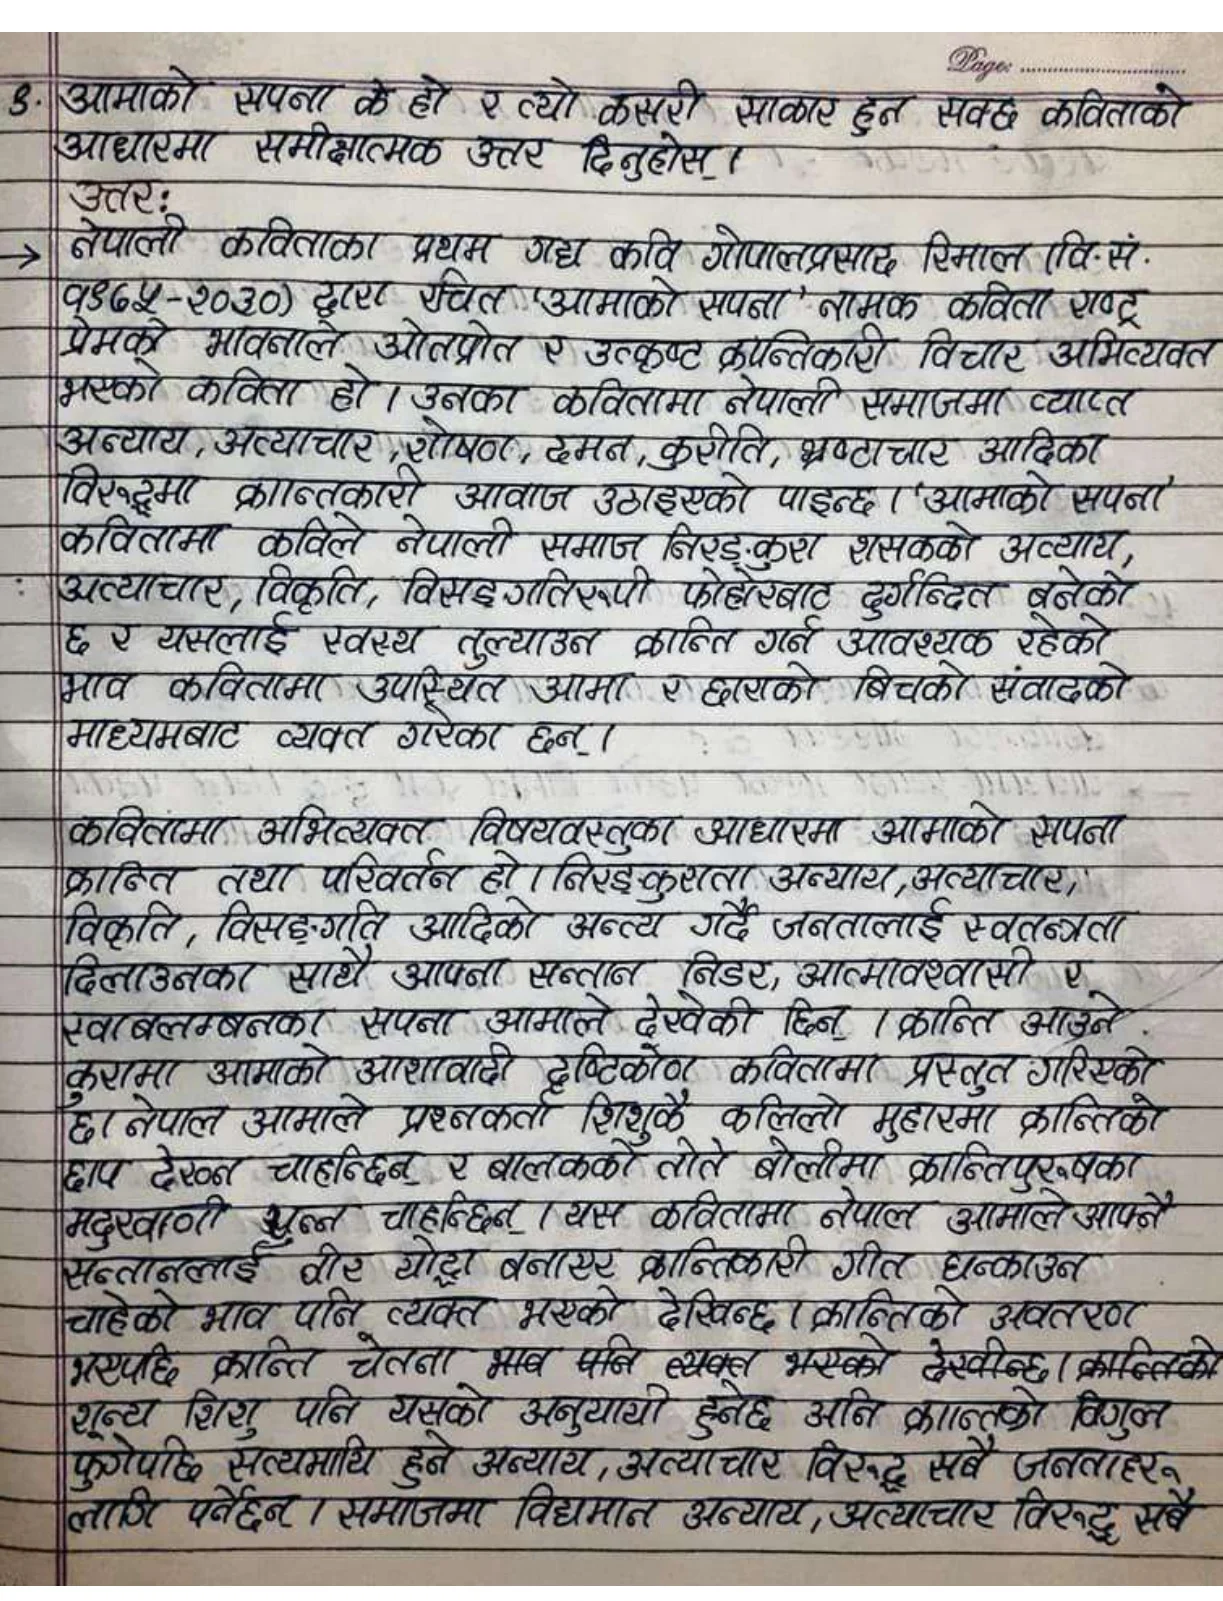 Page: ..............................
३. आमाको सपना के हो र त्यो कसरी साकार हुन सक्छ कविताको
आधारमा समीक्षात्मक उत्तर दिनुहोस् ।
उत्तर:
→ नेपाली कविताका प्रथम गद्य कवि गोपालप्रसाद रिमाल (वि.सं.
१९७५-२०३०) द्वारा रचित 'आमाको सपना' नामक कविता राष्ट्र
प्रेमको भावनाले ओतप्रोत र उत्कृष्ट क्रान्तिकारी विचार अभिव्यक्त
भएको कविता हो । उनका कवितामा नेपाली समाजमा व्याप्त
अन्याय, अत्याचार, शोषण, दमन, कुरीति, भ्रष्टाचार आदिका
विरुद्धमा क्रान्तिकारी आवाज उठाइएको पाइन्छ । 'आमाको सपना'
कवितामा कविले नेपाली समाज निरङ्कुश शसकको अन्याय,
अत्याचार, विकृति, विसङ्गतिरूपी फोहोरबाट दुर्गन्दित बनेको
छ र यसलाई स्वस्थ तुल्याउन क्रान्ति गर्न आवश्यक रहेको
भाव कवितामा उपस्थित आमा र छोराको बिचको संवादको
माध्यमबाट व्यक्त गरेका छन् ।
कवितामा अभिव्यक्त विषयवस्तुका आधारमा आमाको सपना
क्रान्ति तथा परिवर्तन हो । निरङ्कुशता अन्याय, अत्याचार,
विकृति, विसङ्गति आदिको अन्त्य गर्दै जनतालाई स्वतन्त्रता
दिलाउनका साथै आफ्ना सन्तान निडर, आत्मविश्वासी र
स्वाबलम्बनका सपना आमाले देखेकी छिन् । क्रान्ति आउने
कुरामा आमाको आशावादी दृष्टिकोण कवितामा प्रस्तुत गरिएको
छ। नेपाल आमाले प्रश्नकर्ता शिशुकै कलिलो मुहारमा क्रान्तिको
छाप देख्न चाहन्छिन् र बालकको तोते बोलीमा क्रान्तिपुरूषका
मदुरवाणी सुन्न चाहन्छिन् । यस कवितामा नेपाल आमाले आफ्नै
सन्तानलाई वीर योद्धा बनाएर क्रान्तिकारी गीत घन्काउन
चाहेको भाव पनि व्यक्त भएको देखिन्छ । क्रान्तिको अवतरण
भएपछि क्रान्ति चेतना भाव पनि व्यक्त भएको देखीन्छ । क्रान्तिको
शून्य शिशु पनि यसको अनुयायी हुनेछ अनि क्रान्तिको विगुल
फुगेपछि सत्यमाथि हुने अन्याय, अत्याचार विरुद्ध सबै जनताहरू
लागि पर्नेछन् । समाजमा विद्यमान अन्याय, अत्याचार विरुद्ध सबै